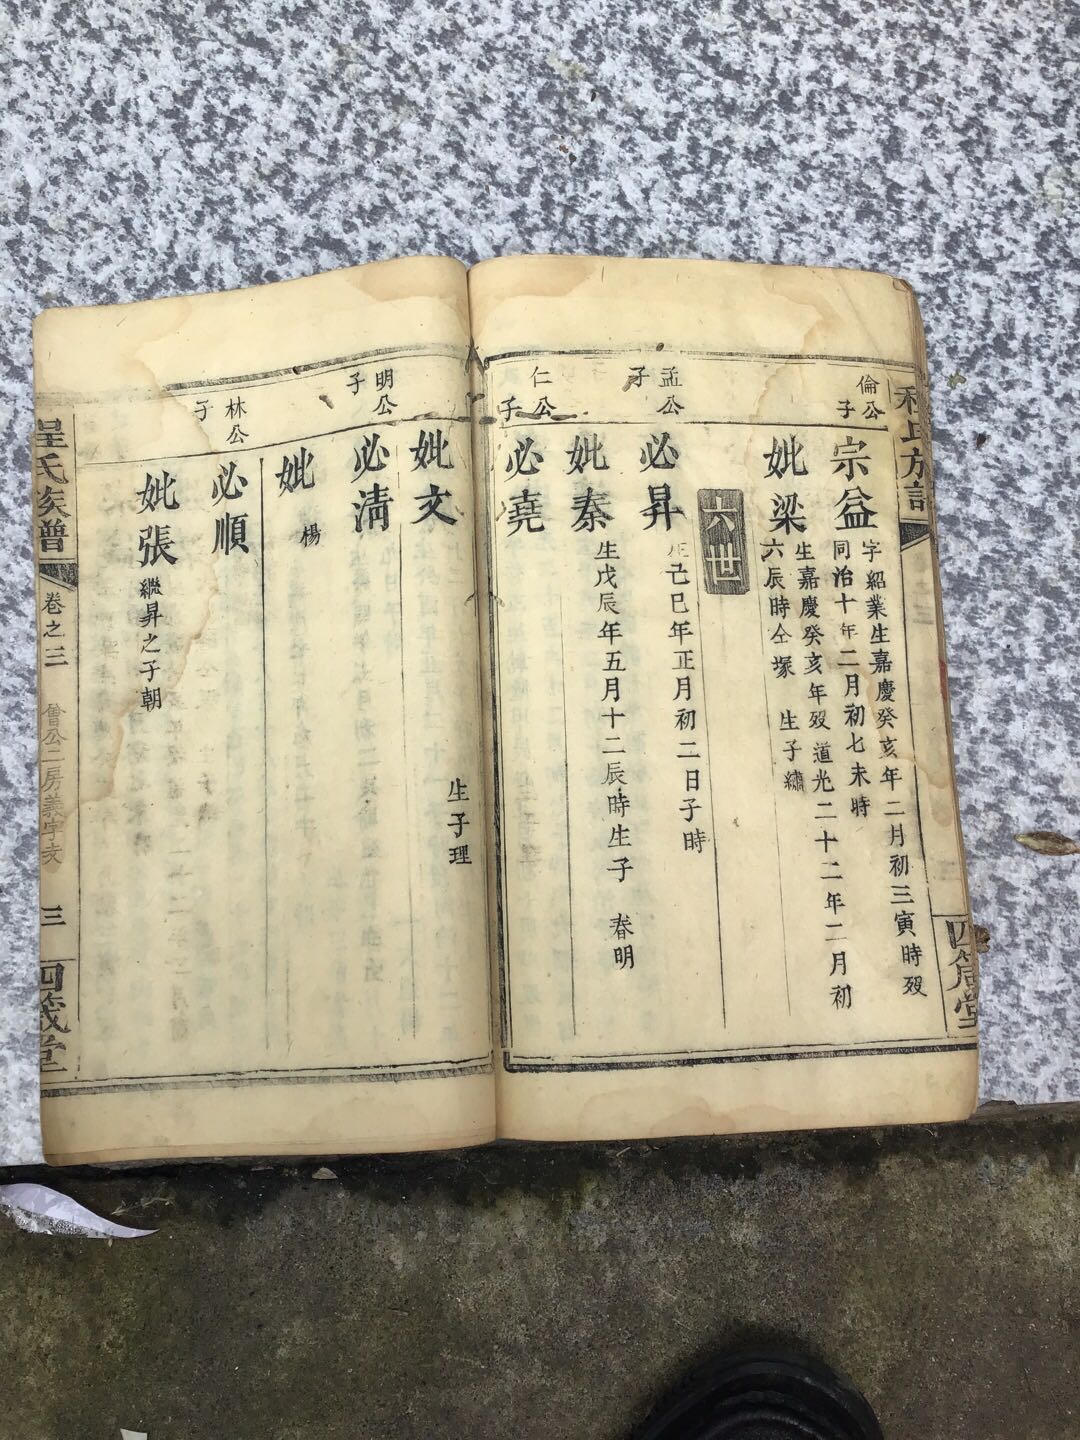 程氏族譜
四箴堂
倫公子
宗益
字紹業生嘉慶癸亥年二月初三寅時歿
同治十年二月初七未時
妣梁
生嘉慶癸亥年歿道光二十二年二月初
六辰時仝塚 生子繡
六世
孟公子
必昇
生己巳年正月初二日子時
妣秦
生戊辰年五月十二辰時生子 春明
仁公子
必堯
妣文
生子理
明公子
必清
妣
楊
林公子
必順
妣張
繼昇之子朝
程氏族譜
卷之三
曾公二房義字支
三
四箴堂